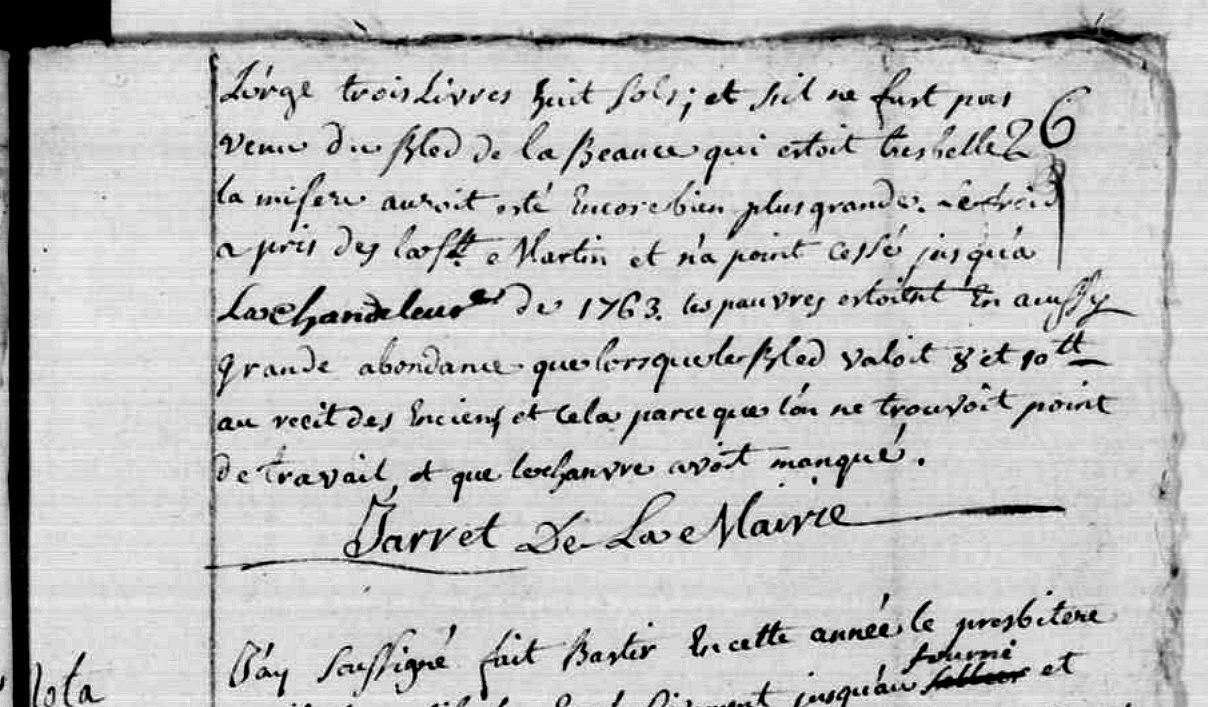 L'orge trois Livres huit sols; et s'il ne fust pas
venu du Bled de la Beauce qui estoit tres belle 26
la misere auroit esté Encore bien plus grande. Le froid
a pris des la St. Martin et n'a point cessé jusqu'a
La chandeleur de 1763. les pauvres estoient En aussy
grande abondance que lorsque le Bled valoit 8 et 10 tt
au recit des Enciens et cela parce que l'on ne trouvoit point
de travail, et que le chanvre avoit manqué.
Jarret De La Mairie
J'ay soussigné fait Bastir En cette année le presbitere
Nota
fourni
jusqu'au et